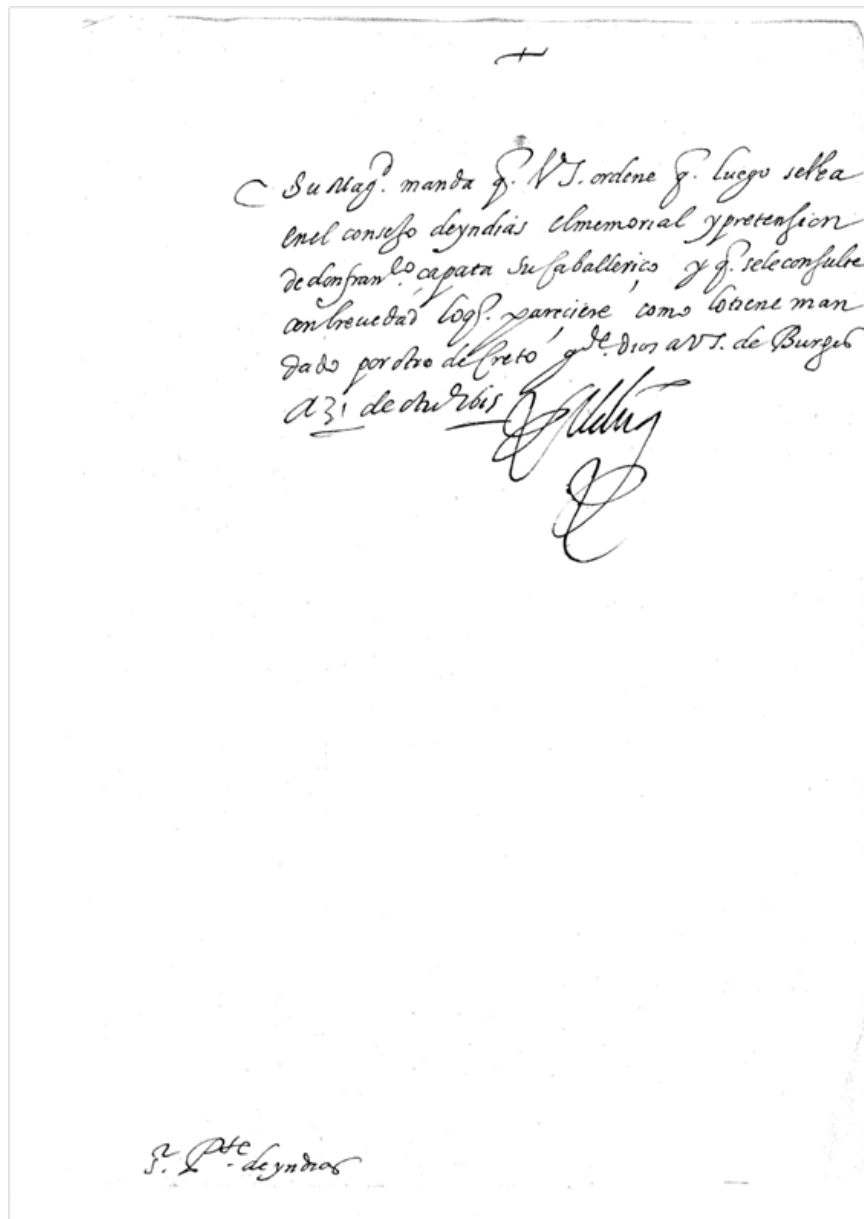 Su Mag.d manda q. V S. ordene q. luego se Vea
en el consejo de yndias el memorial y pretension
de don fran.co capata su Caballerico y q. se le consulte
con brevedad lo q. pareciere como lo tiene man
dado por otro decreto g.de Dios a V S. de Burgos
a 31 de otu.e 1615
s.r P.te de yndias